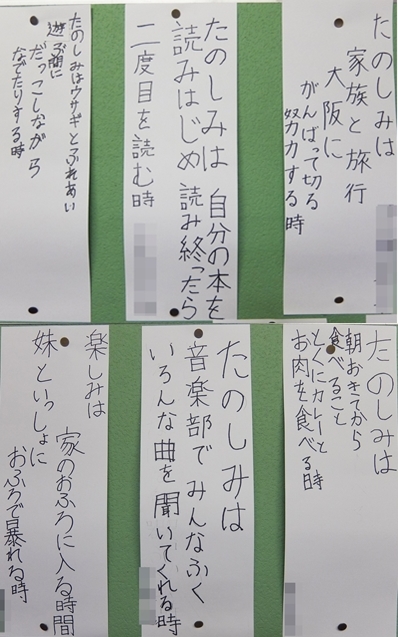 たのしみは
家族と旅行
大阪に
がんばって切る
努力する時
たのしみは 自分の本を
読みはじめ 読み終ったら
二度目を読む時
たのしみはウサギとふれあい
遊ぶ間に
だっこしながら
なでたりする時
たのしみは
朝おきてから
食べること
とくにカレーと
お肉を食べる時
たのしみは
音楽部でみんなふく
いろんな曲を聞いてくれる時
楽しみは
家のおふろに入る時間
妹といっしょに
おふろで暴れる時